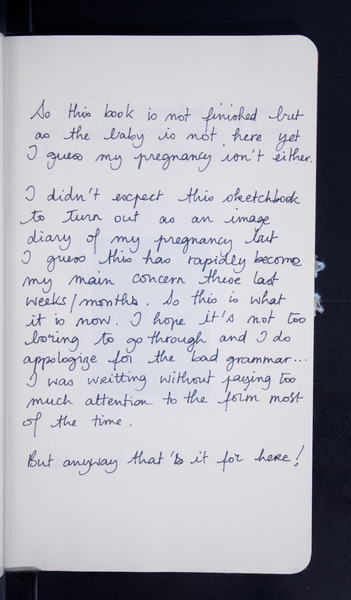 So this book is not finished but
as the baby is not here yet
I guess my pregnancy isn't either.
I didn't expect this sketchbook
to turn out as an image
diary of my pregnancy but
I guess this has rapidly become
my main concern these last
weeks/months. So this is what
it is now. I hope it's not too
boring to go through and I do
appologize for the bad grammar...
I was writting without paying too
much attention to the form most
of the time.
But anyway that's it for here!